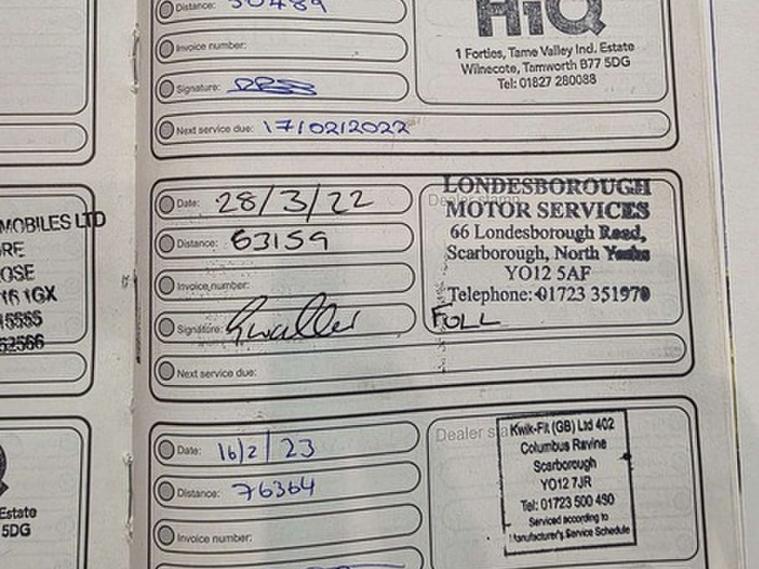 Distance: 50489
HiQ
Invoice number:
1 Forties, Tame Valley Ind. Estate
Wilnecote, Tamworth B77 5DG
Tel: 01827 280088
Signature:
Next service due: 17/02/2022
MOBILES LTD
RE
OSE
1GX
Date: 28/3/22
Distance: 63159
Invoice number:
Signature:
Next service due:
Dealer stamp
LONDESBOROUGH
MOTOR SERVICES
66 Londesborough Road,
Scarborough, North Yorks
YO12 5AF
Telephone: 01723 351970
FULL
Date: 16/2/23
Distance: 76364
Invoice number:
Dealer sta
Kwik-Fit (GB) Ltd 402
Columbus Ravine
Scarborough
YO12 7JR
Tel: 01723 500 490
Serviced according to
Manufacturer's Service Schedule
Estate
5DG